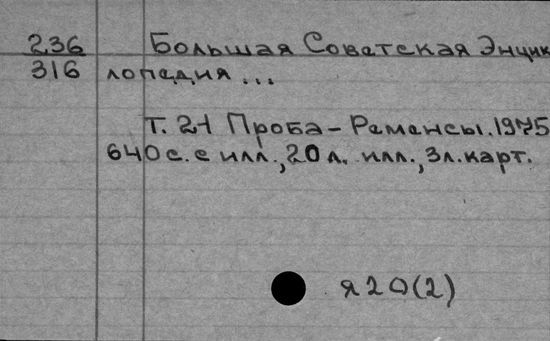 236 Большая Советская Энцик
316 лопедия ...
Т. 21 Проба - Ременсы. 1975
640 с. с илл., 20 л. илл., 3 л. карт.
я20(2)